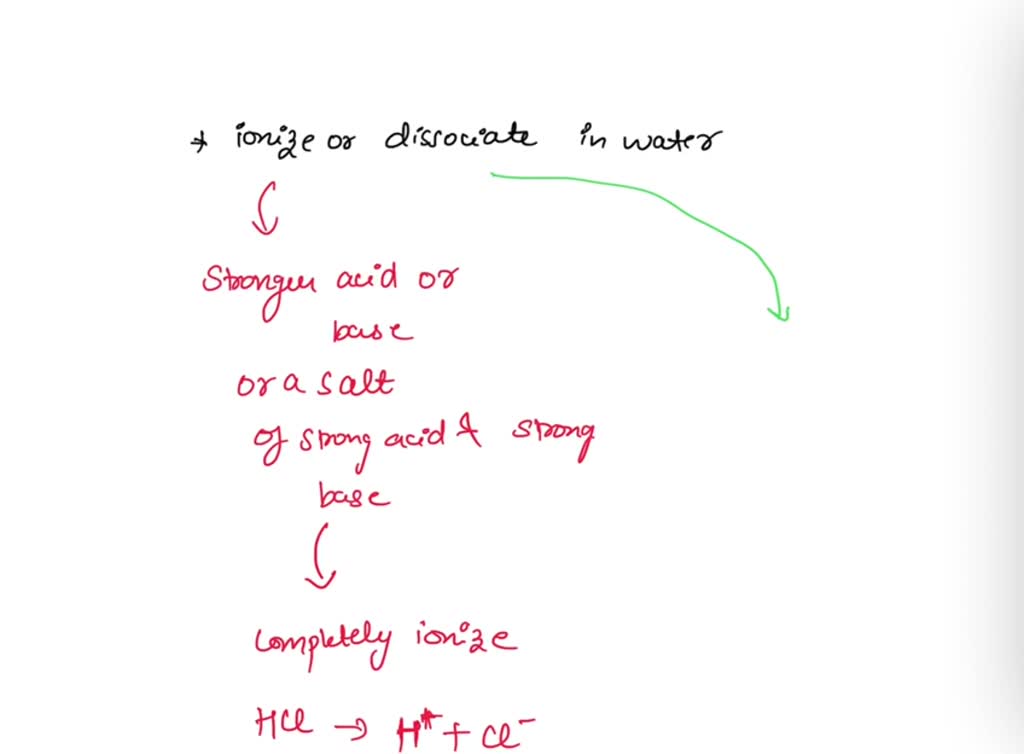 * ionize or dissociate in water
Stronger acid or
base
or a salt
of strong acid & strong
base
Completely ionize
HCl → H⁺ + Cl⁻